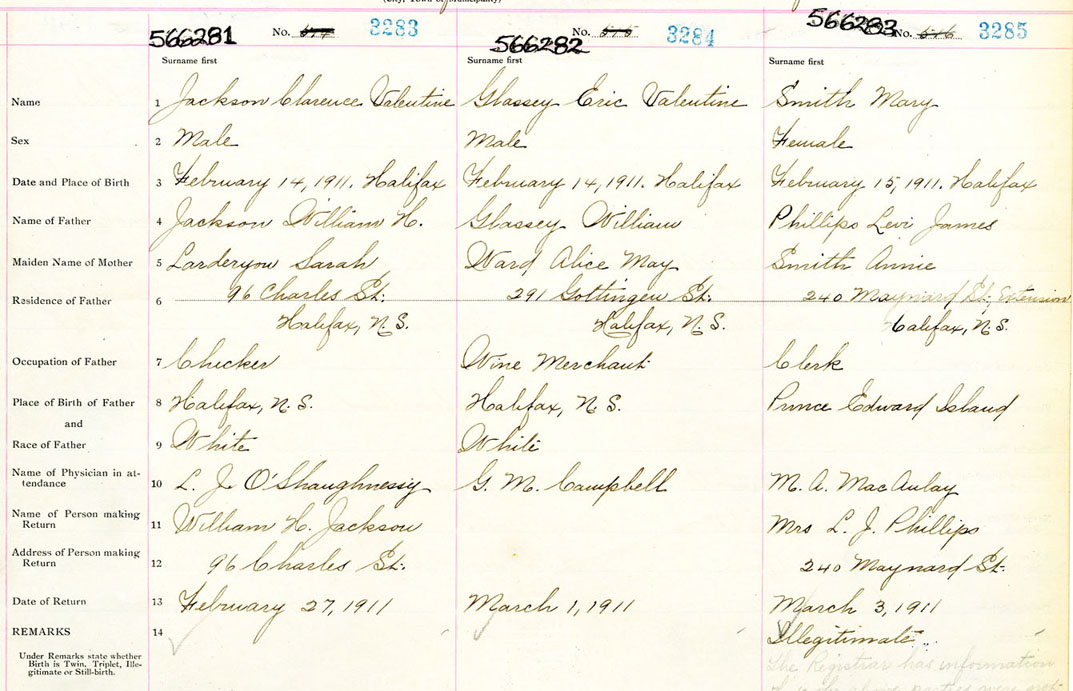 (City, Town or Municipality)
566281 No. 3283 566282 No. 3284 566283 No. 3285
Surname first Surname first Surname first
Name 1 Jackson Clarence Valentine Glassey Eric Valentine Smith Mary
Sex 2 Male Male Female
Date and Place of Birth 3 February 14, 1911. Halifax February 14, 1911. Halifax February 15, 1911. Halifax
Name of Father 4 Jackson William H. Glassey William Phillips Levi James
Maiden Name of Mother 5 Larderyou Sarah Ward Alice May Smith Annie
Residence of Father 6 96 Charles St. 291 Gottingen St. 240 Maynard St. Extension
Halifax, N.S. Halifax, N.S. Halifax, N.S.
Occupation of Father 7 Checker Wine Merchant Clerk
Place of Birth of Father 8 Halifax, N.S. Halifax, N.S. Prince Edward Island
and
Race of Father 9 White White
Name of Physician in at-
tendance 10 L. J. O'Shaughnessy G. M. Campbell M. A. MacAulay
Name of Person making
Return 11 William H. Jackson Mrs L. J. Phillips
Address of Person making
Return 12 96 Charles St. 240 Maynard St.
Date of Return 13 February 27, 1911 March 1, 1911 March 3, 1911
REMARKS 14 Illegitimate
Under Remarks state whether
Birth is Twin, Triplet, Ille-
gitimate or Still-birth.
The Registrar has information
the above parties were